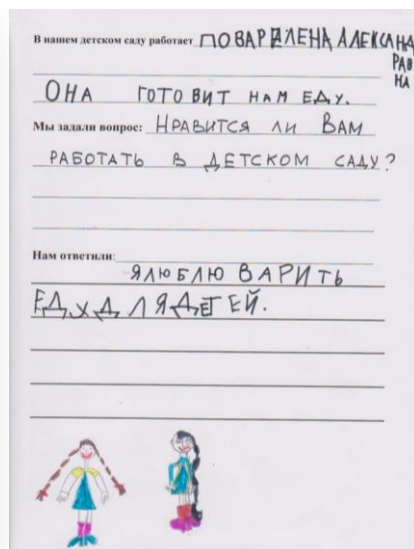 В нашем детском саду работает ПОВАР ЕЛЕНА АЛЕКСАНД
РАВ
НА
ОНА ГОТОВИТ НАМ ЕДУ.
Мы задали вопрос: НРАВИТСЯ ЛИ ВАМ
РАБОТАТЬ В ДЕТСКОМ САДУ?
Нам ответили:
ЯЛЮБЛЮ ВАРИТЬ
ЕДУДЛЯДЕТЕЙ.